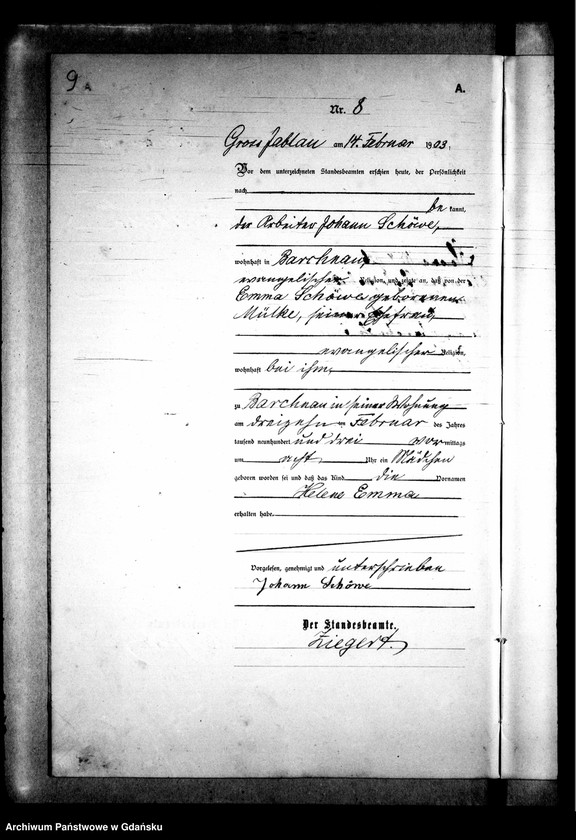 9 A
A.
Nr. 8
Gross Jablau am 14. Februar 1903.
Vor dem unterzeichneten Standesbeamten erschien heute, der Persönlichkeit
nach
be kannt,
der Arbeiter Johann Schöwe,
wohnhaft in Barchnau,
evangelischer Religion, und zeigte an, daß von der
Emma Schöwe geborenen
Mülke, seiner Ehefrau,
evangelischer Religion,
wohnhaft bei ihm,
zu Barchnau in seiner Wohnung
am dreizehn ten Februar des Jahres
tausend neunhundert und drei vor mittags
um acht Uhr ein Mädchen
geboren worden sei und daß das Kind die Vornamen
Helene Emma
erhalten habe.
Vorgelesen, genehmigt und unterschrieben
Johann Schöwe
Der Standesbeamte.
Ziegert.
Archiwum Państwowe w Gdańsku